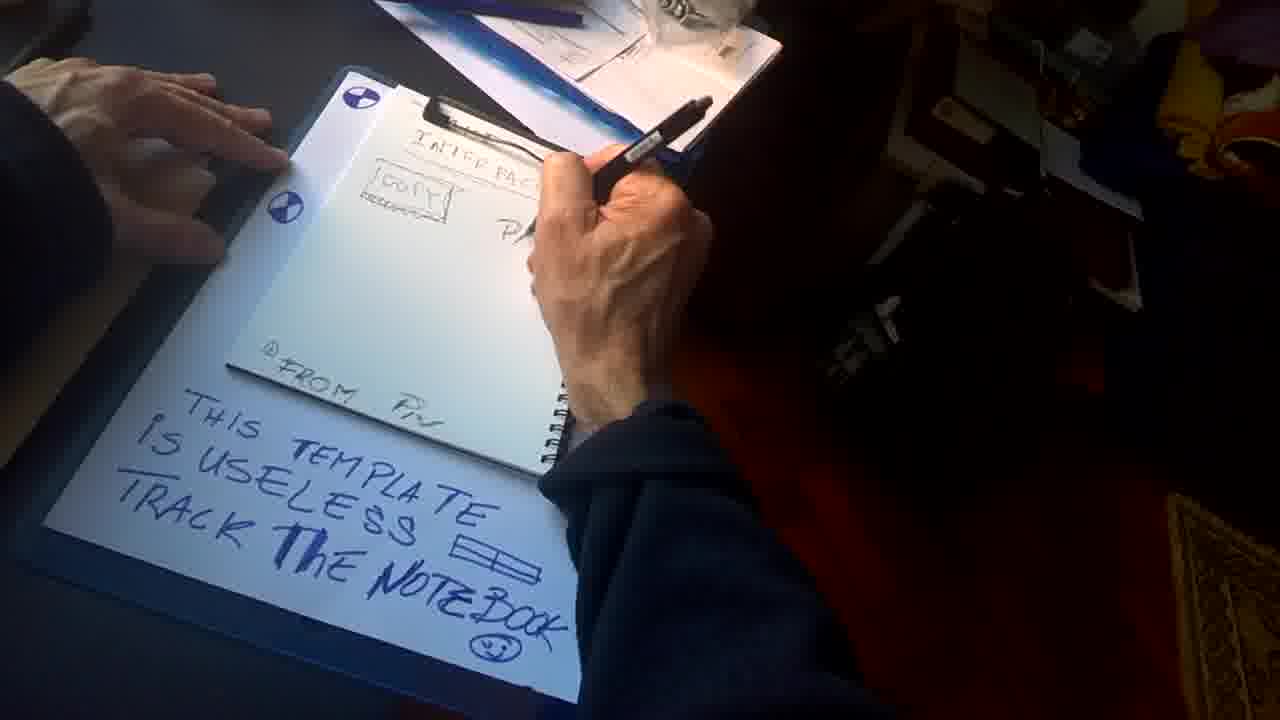 INTERFAC
COPY
P
FROM Pin
THIS TEMPLATE
iS USELESS
TRACK ThE NOTEBOOK